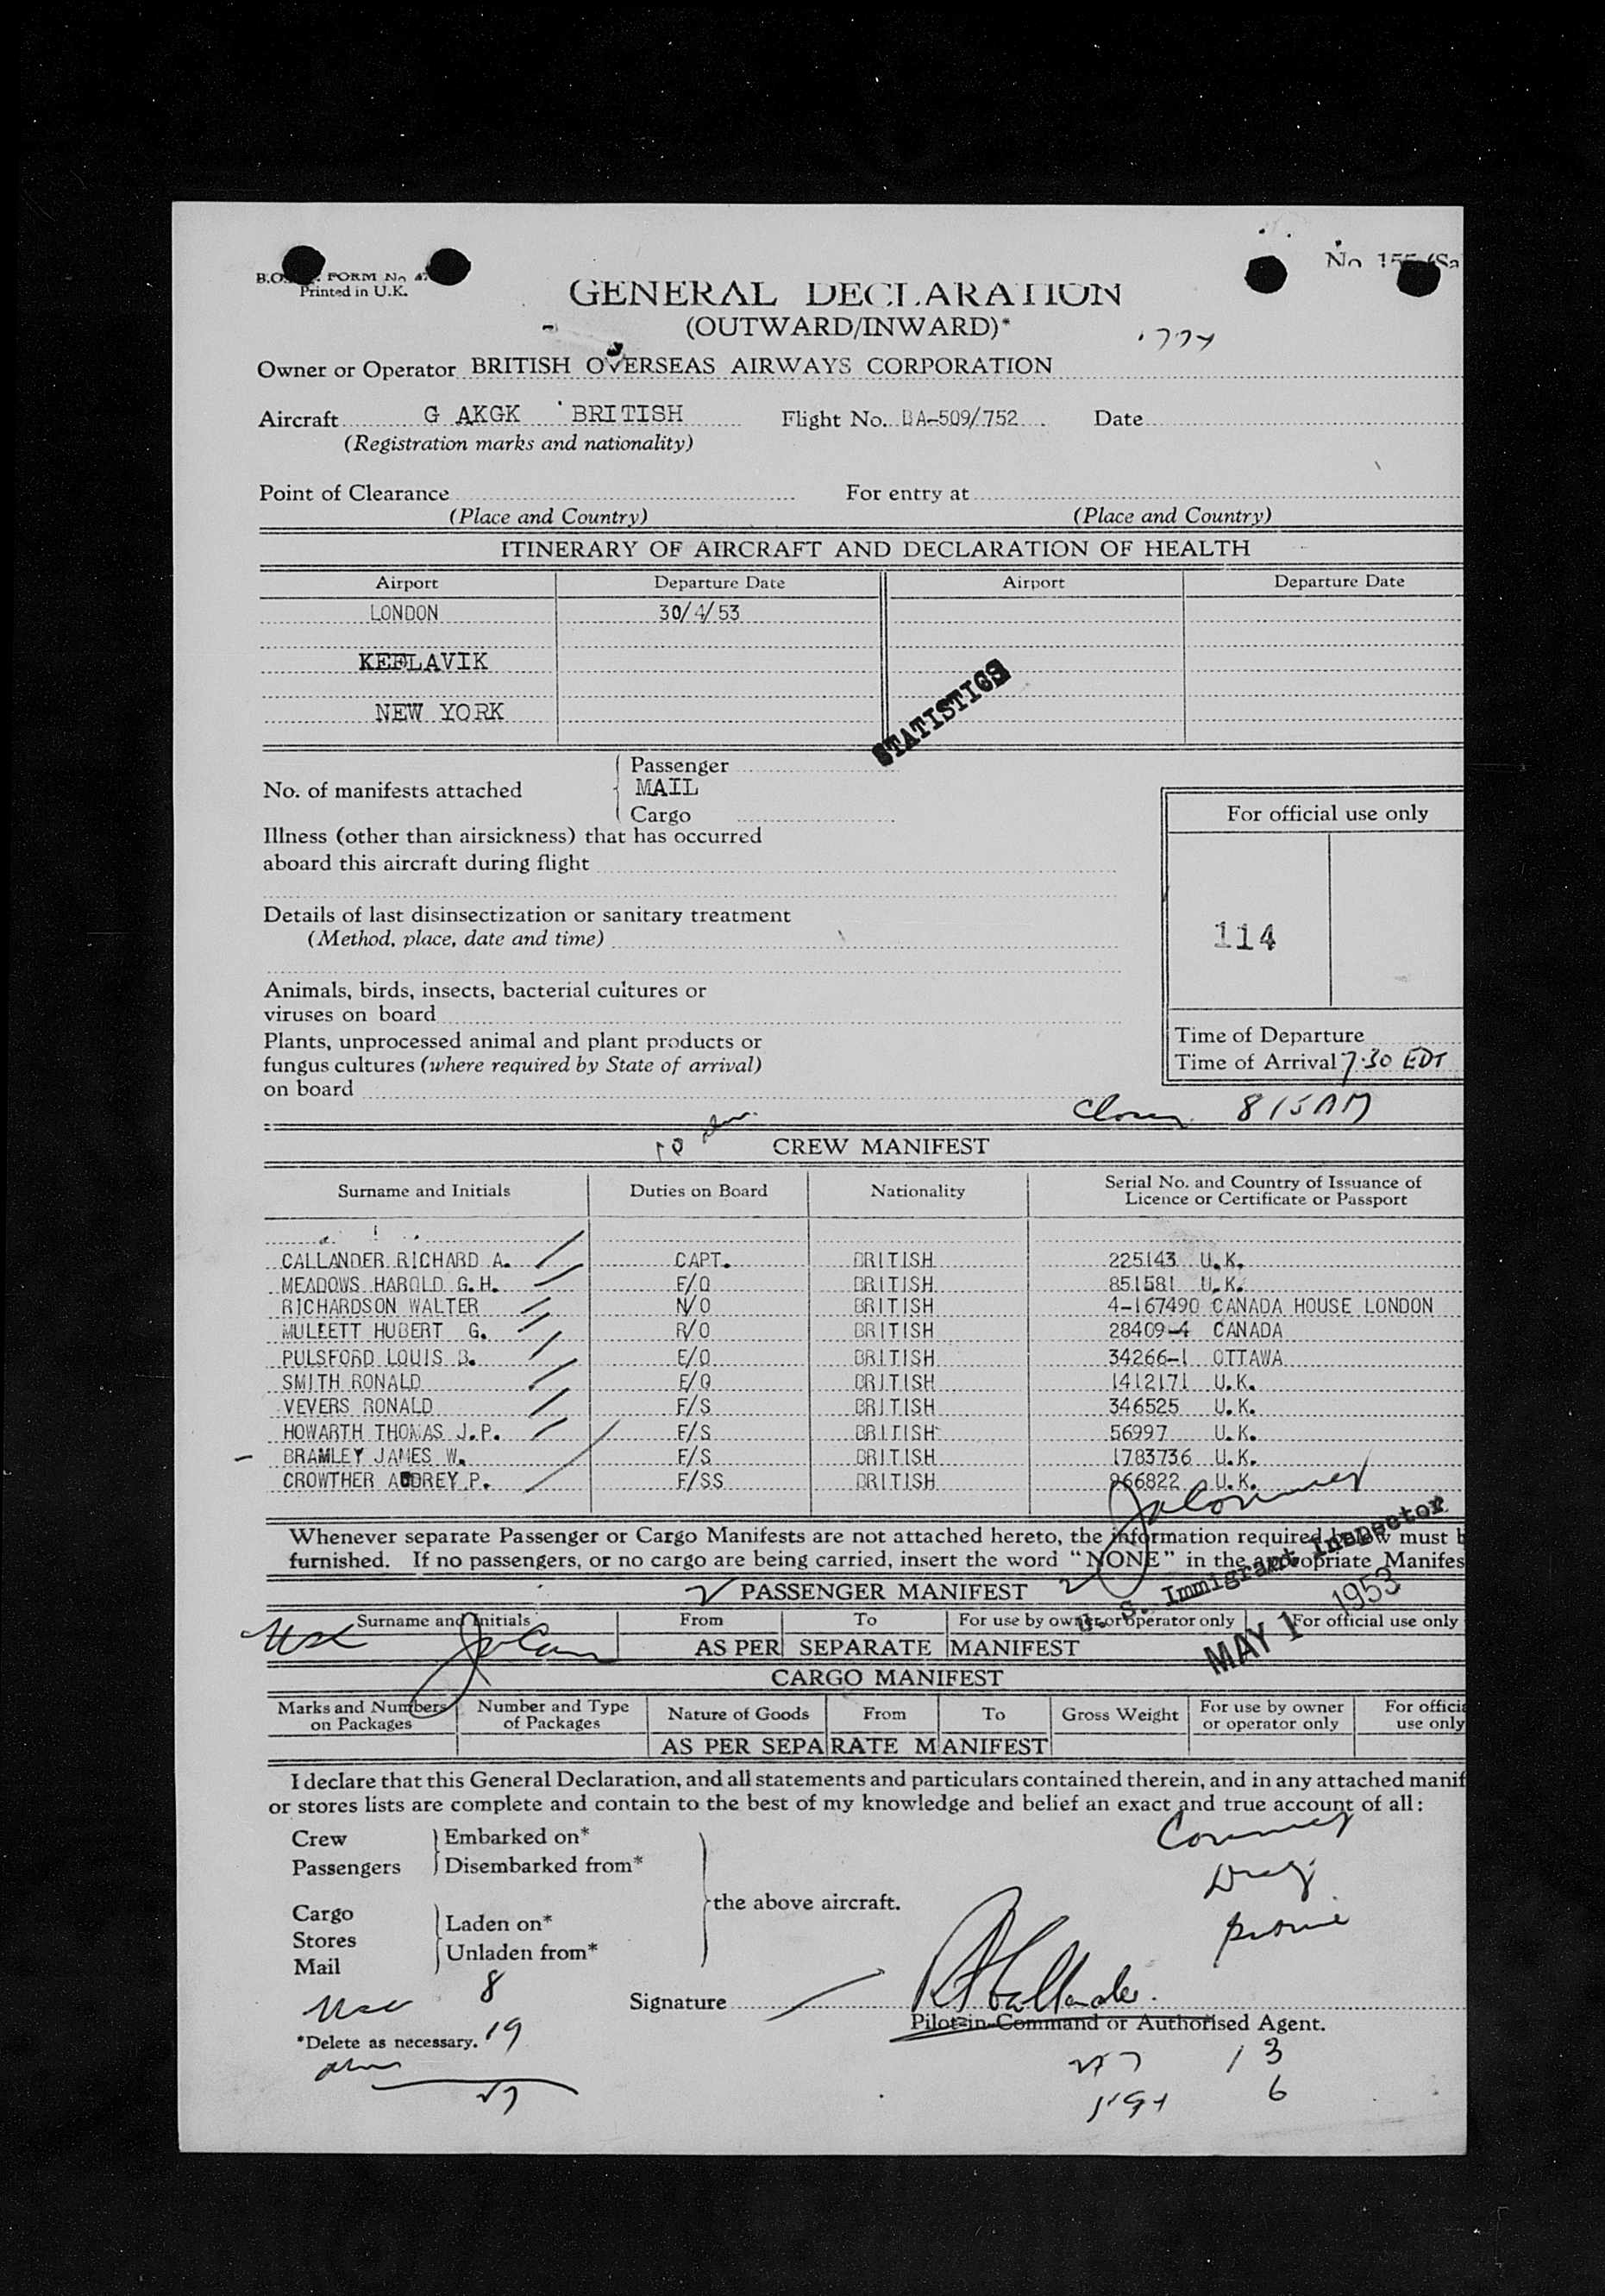 FORM No
Printed in U.K.
GENERAL DECLARATION
(OUTWARD/INWARD)*
Owner or Operator BRITISH OVERSEAS AIRWAYS CORPORATION
Aircraft G AKGK BRITISH Flight No. BA-509/752 Date
(Registration marks and nationality)
Point of Clearance For entry at
(Place and Country) (Place and Country)
ITINERARY OF AIRCRAFT AND DECLARATION OF HEALTH
Airport Departure Date Airport Departure Date
LONDON 30/4/53
KEFLAVIK
NEW YORK
STATISTICS
No. of manifests attached
Passenger
MAIL
Cargo
For official use only
Illness (other than airsickness) that has occurred
aboard this aircraft during flight
Details of last disinsectization or sanitary treatment
(Method, place, date and time)
114
Animals, birds, insects, bacterial cultures or
viruses on board
Plants, unprocessed animal and plant products or
fungus cultures (where required by State of arrival)
on board
Time of Departure
Time of Arrival 7.30 EDT
815AM
CREW MANIFEST
Surname and Initials Duties on Board Nationality Serial No. and Country of Issuance of
Licence or Certificate or Passport
CALLANDER RICHARD A. CAPT. BRITISH 225143 U.K.
MEADOWS HAROLD G.H. F/O BRITISH 851581 U.K.
RICHARDSON WALTER N/O BRITISH 4-167490 CANADA HOUSE LONDON
MULLETT HUBERT G. R/O BRITISH 28409-4 CANADA
PULSFORD LOUIS B. E/O BRITISH 34266-1 OTTAWA
SMITH RONALD E/O BRITISH 1412171 U.K.
VEVERS RONALD F/S BRITISH 346525 U.K.
HOWARTH THOMAS J.P. F/S BRITISH 56997 U.K.
BRAMLEY JAMES W. F/S BRITISH 1783736 U.K.
CROWTHER AUDREY P. F/SS BRITISH 966822 U.K.
Whenever separate Passenger or Cargo Manifests are not attached hereto, the information required below must b
furnished. If no passengers, or no cargo are being carried, insert the word "NONE" in the appropriate Manifes
U. S. Immigrant Inspector
MAY 1 1953
PASSENGER MANIFEST
Surname and Initials From To For use by owner or operator only For official use only
AS PER SEPARATE MANIFEST
CARGO MANIFEST
Marks and Numbers on Packages Number and Type of Packages Nature of Goods From To Gross Weight For use by owner or operator only For officia use only
AS PER SEPARATE MANIFEST
I declare that this General Declaration, and all statements and particulars contained therein, and in any attached manif
or stores lists are complete and contain to the best of my knowledge and belief an exact and true account of all:
Crew Embarked on*
Passengers Disembarked from*
the above aircraft.
Cargo
Stores
Mail
Laden on*
Unladen from*
8
Signature RA Callander.
Pilot-in-Command or Authorised Agent.
*Delete as necessary. 19
27
13
6